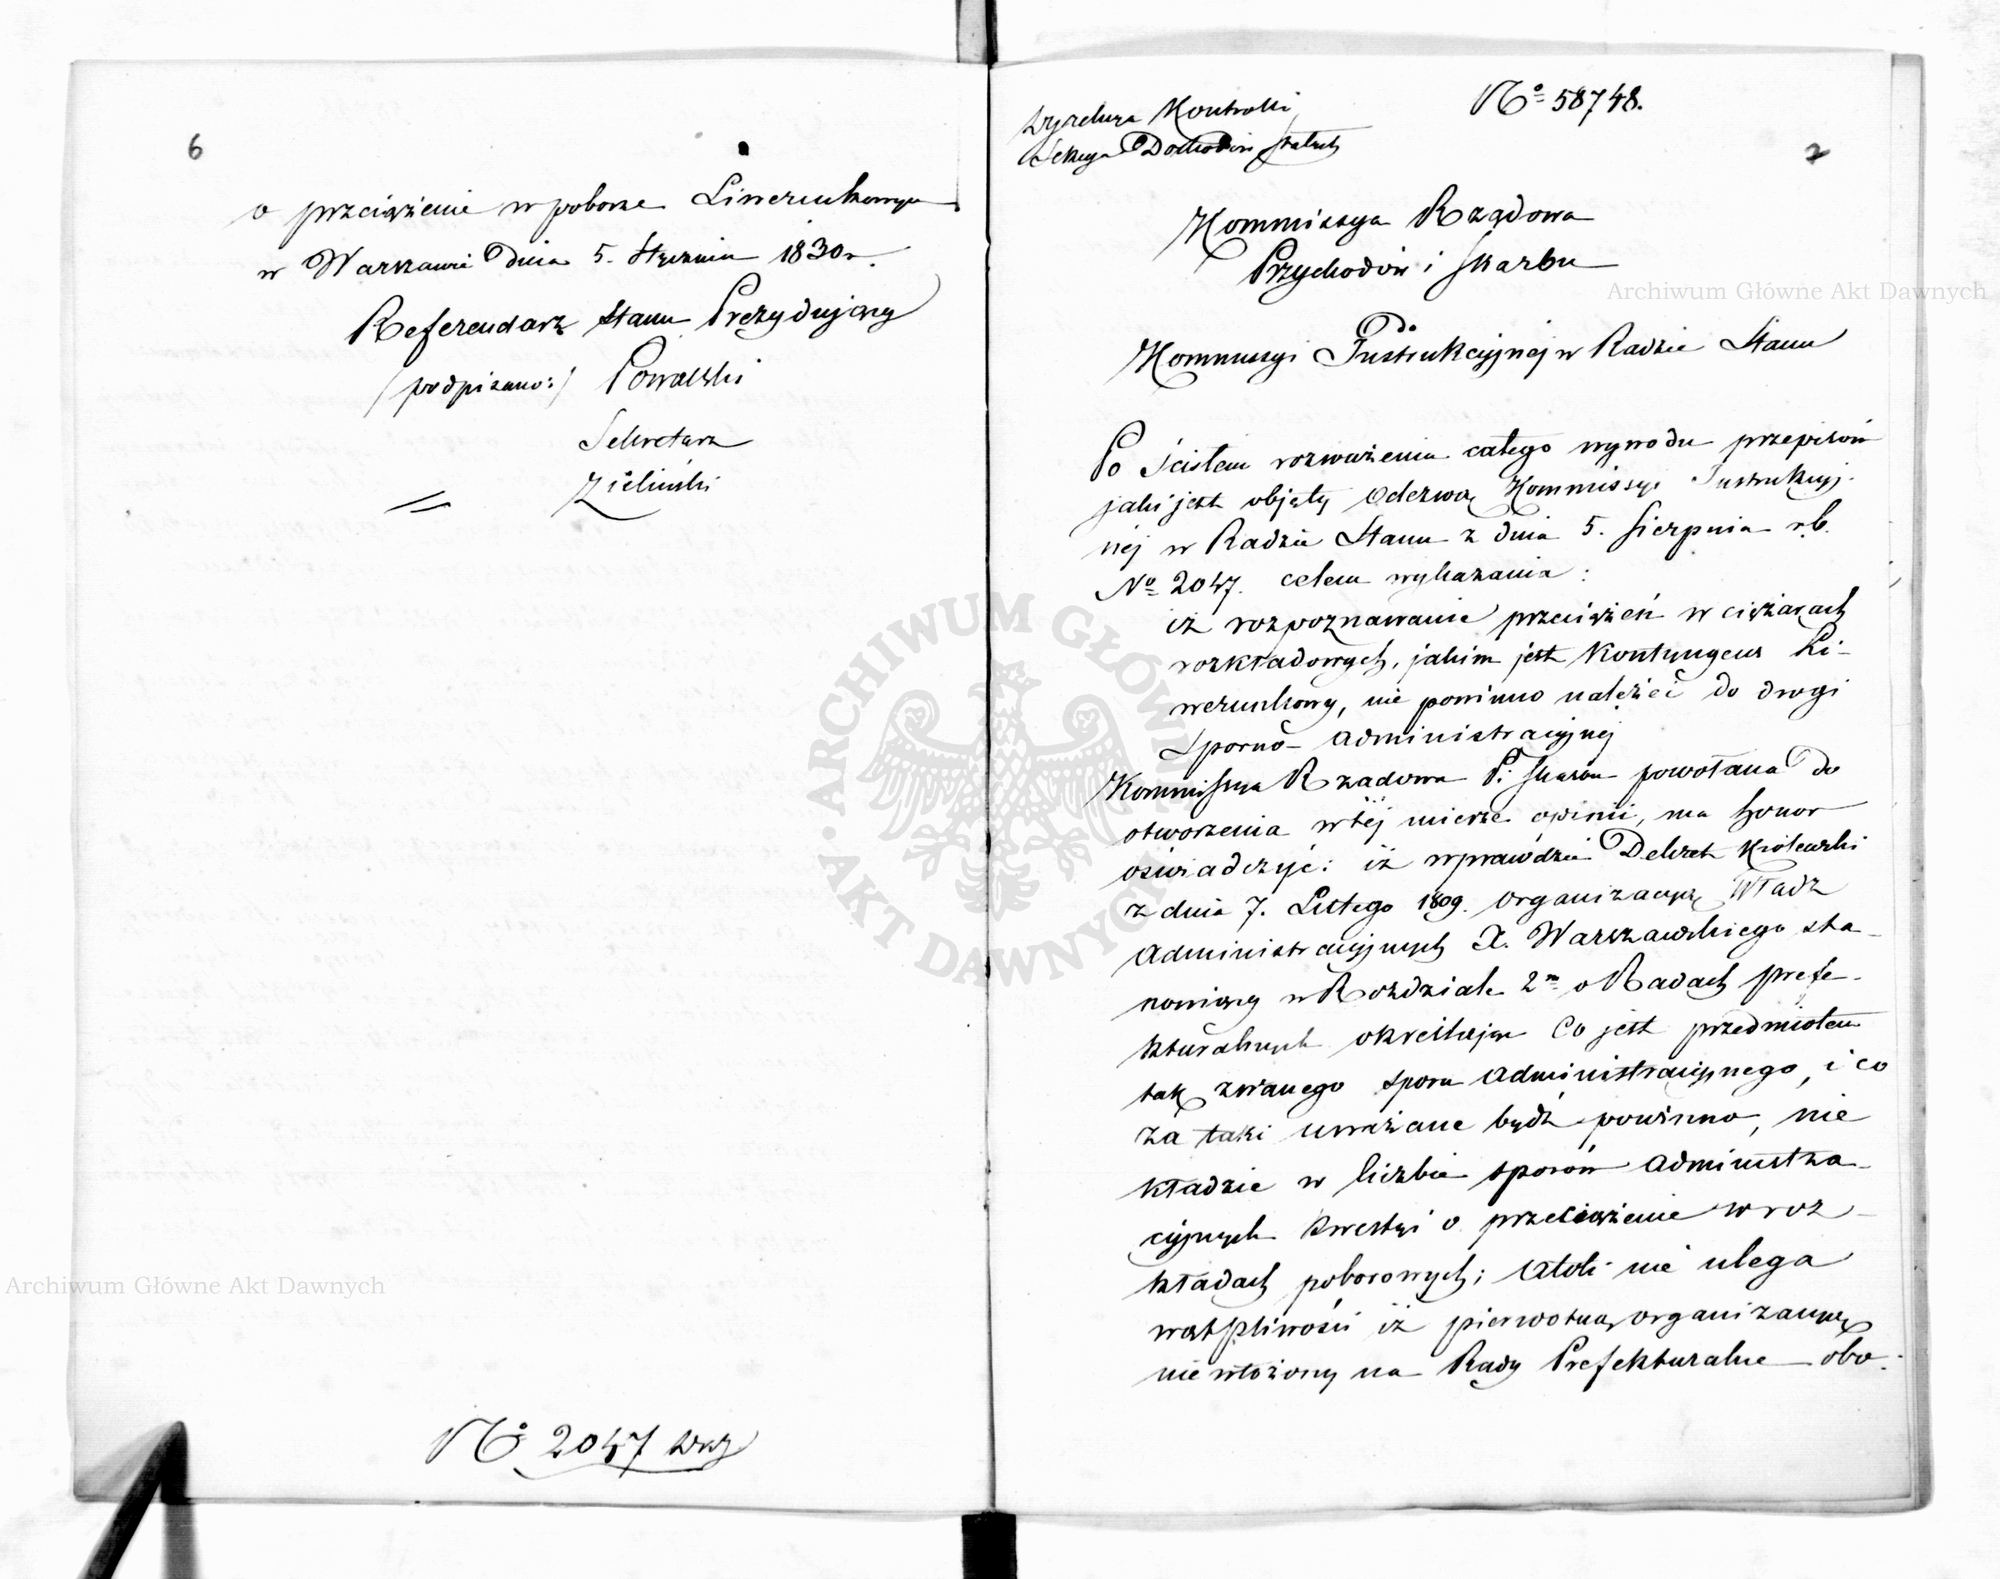 6
o przeciążenie w poborze Liwerunkowym
w Warszawie Dnia 5. Stycznia 1830 r.
Referendarz Stanu Prezydujący
/podpisano:/ Powalski
Sekretarz
Zieliński
No 2047
No 58748.
Wydział Kontrolli
Sekcya Dochodów stałych
Kommissya Rządowa
Przychodów i Skarbu
Do
Kommissyi Instrukcyjnej w Radzie Stanu
Po ścisłem rozważeniu całego wywodu przepisów
jaki jest objęty Odezwą Kommissyi Instrukcyj-
nej w Radzie Stanu z dnia 5. Sierpnia r.b.
No 2047. celem wykazania:
iż rozpoznawanie przeciążeń w ciężarach
rozkładowych, jakim jest Kontyngens Li-
werunkowy, nie powinno należeć do drogi
Sporno-administracyjnej
Kommissya Rządowa P. i Skarbu powołana do
otworzenia w téj mierze opinii, ma honor
oświadczyć: iż wprawdzie Dekret Królewski
z dnia 7. Lutego 1809. organizacyą Władz
Administracyjnych X. Warszawskiego sta-
nowiący w Rozdziale 2m o Radach prefe-
kturalnych określając co jest przedmiotem
tak zwanego sporu administracyjnego, i co
za taki uważane bydź powinno, nie
kładzie w liczbie sporów administra-
cyjnych kwestyi o przeciążenie w roz-
kładach poborowych; atoli nie ulega
wątpliwości iż pierwotną organizacyą
nie włożony na Rady Prefekturalne obo-
Archiwum Główne Akt Dawnych
Archiwum Główne Akt Dawnych
ARCHIWUM GŁÓWNE AKT DAWNYCH